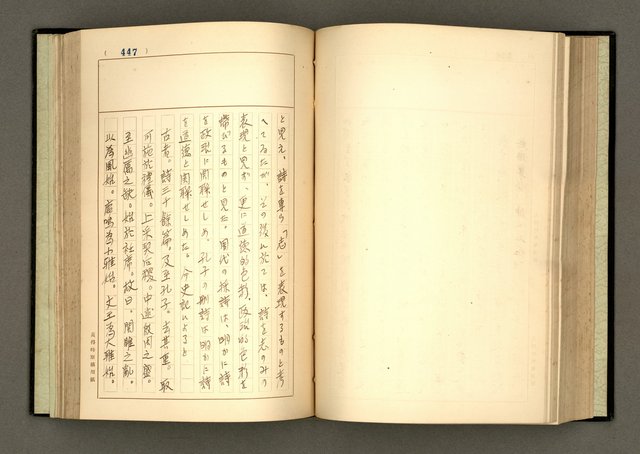 ( 447 )
と見え、詩を専ら「志」を表現するものと考
へてゐたが、その後に於ては、詩を志のみの
表現と見ず、更に道徳的色彩、政治的色彩を
帯びるものと見た。周代の採詩は、明かに詩
を政治に関聯せしめ、孔子の刪詩は明かに詩
を道徳と関聯せしめた。今史記によると
古者。詩三千餘篇。及至孔子。去其重。取
可施於禮儀。上采契后稷。中述殷周之盛。
至幽厲之缺。始於衽席。故曰。關雎之亂。
以為風始。鹿鳴為小雅始。文王為大雅始。